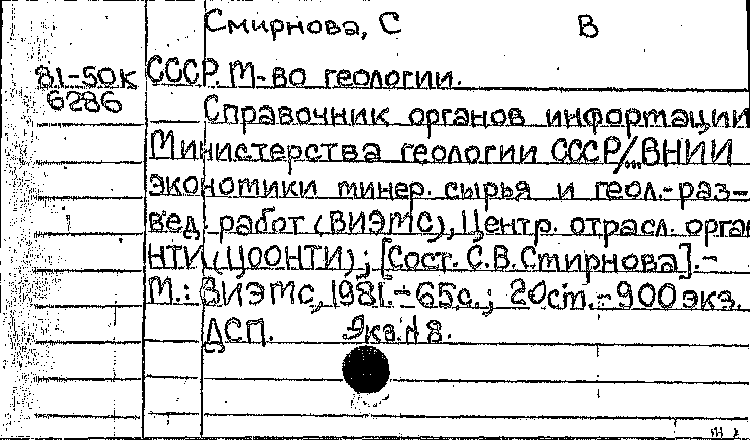 Смирнова, С В
81-50К СССР. М-во геологии.
6286 Справочник органов информации
Министерства геологии СССР/...ВНИИ
экономики минер. сырья и геол.-раз-
вед. работ (ВИЭМС), Центр. отрасл. орган
НТИ (ЦООНТИ); [Сост. С.В.Смирнова].-
М.: ВИЭМС, 1981.-65с.; 20см.-900экз.
ДСП. Экз.№8.